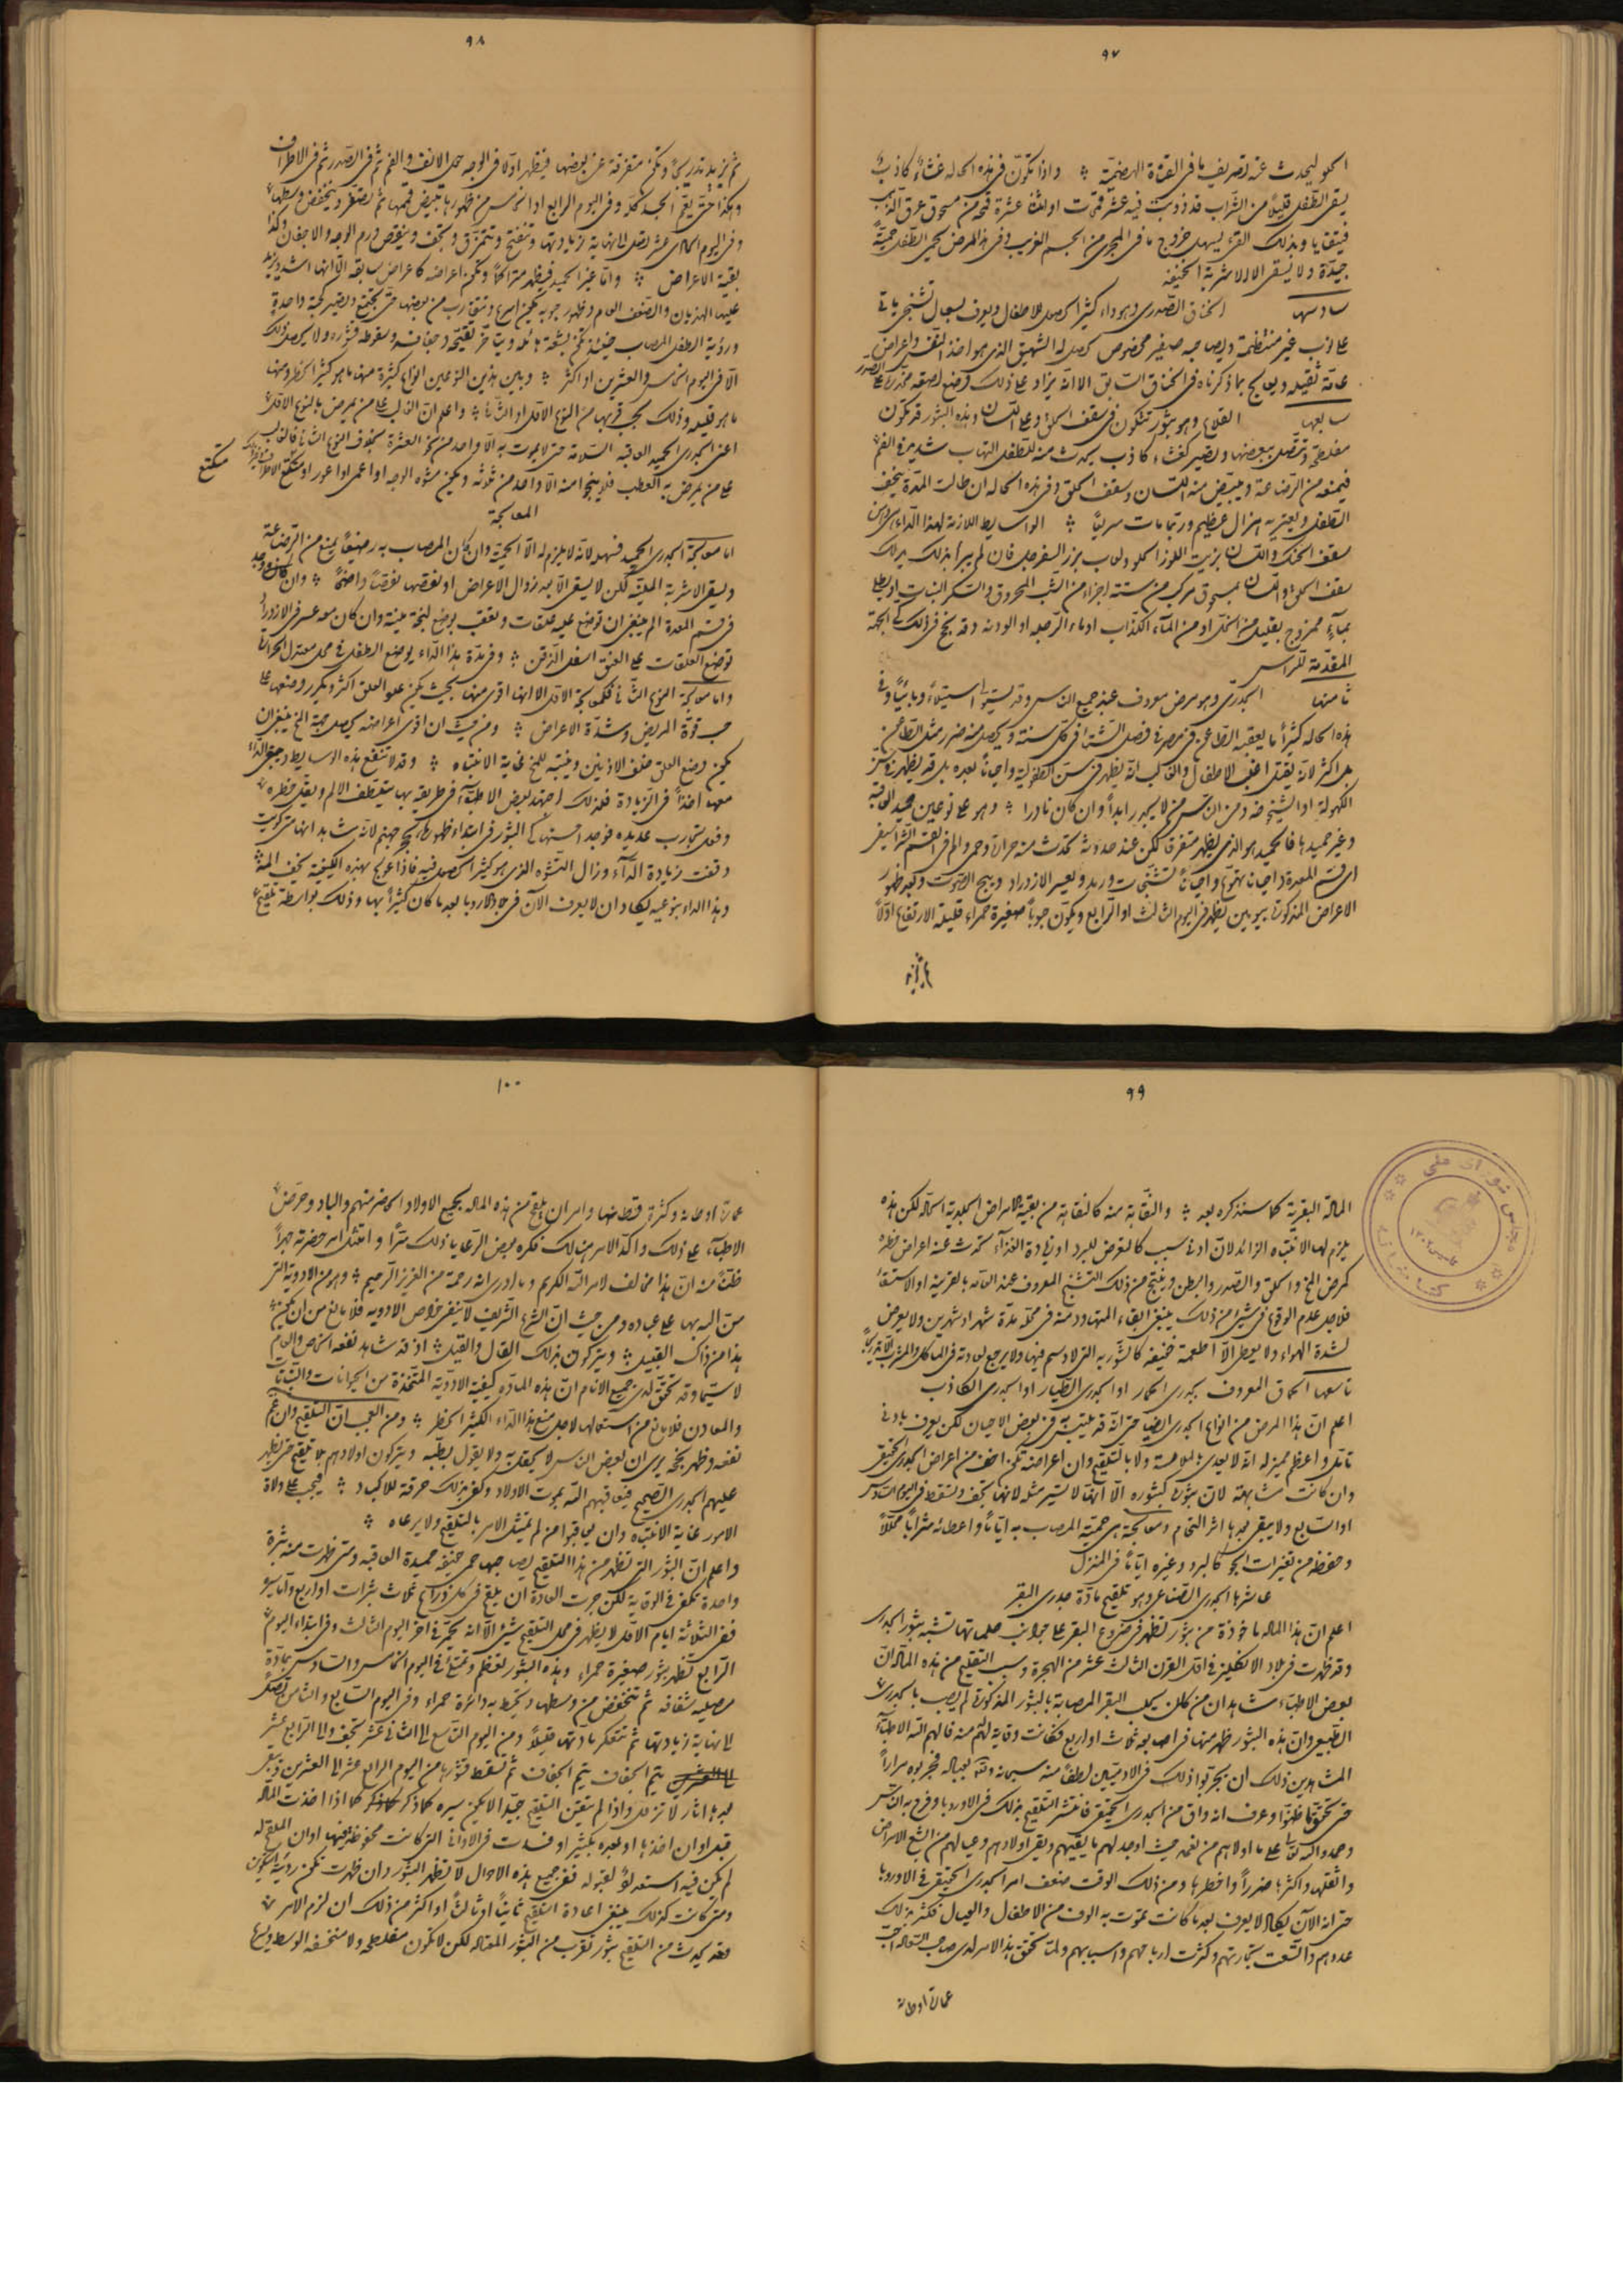 ٩٧
الحلو ليحدث عنه تصريف ما في القناة الهضمية ※ واذا تكوّن في هذه الحالة غشاءً كاذباً
يسقى الطفل قليلاً من الشراب قد ذوّبت فيه عشر قمحات او اثنا عشرة قمحة من مسحوق عرق الذهب
فيتقايا وبذلك القئ يسهل خروج ما في المجرى من الجسم الغريب وفي هذا المرض يحمى الطفل حمية
جيدة ولا يسقى الا الاشربة الخفيفة
سادسها الخناق الصدري وهو داء كثيرا الحصول للاطفال ويعرف بسعال تشنجي ياتي
على نوب غير منتظمة ويصاحبه صفير مخصوص كحصوله الشهيق الذي هو اخذ النفس واعراض
عامة ثقيلة ويعالج بما ذكرناه في الخناق السابق الا انه يزاد على ذلك وضع لصقه مخدرة على الصدر
سابعها القلاع وهو بثور تتكون في سقف الحلق وعلى اللسان وهذه البثور قد تكون
مفلطحة وتتصل ببعضها وتصير كغشاء كاذب يحدث منه للطفل التهاب شديد في الفم
فيمنعه من الرضاعة ويبيض منه اللسان وسقف الحلق وفي هذه الحالة ان طالت المدة ينحف
الطفل ويعتريه هزال عظيم وربما مات سريعاً ※ الوسايط اللازمة لهذا الداء ان يدهن
سقف الحنك واللسان بزيت اللوز الحلو ولعاب بزر السفرجل فان لم يبرأ بذلك يدلك
سقف الحلق واللسان بمسحوق مركب من ستة اجزاء من الشب المحروق والسكر النبات او يطلى
بماءٍ ممزوج بقليل من الخل او من الماء الكذاب او ماء الرجلة او الودنه وقد ينجح في ذلك كي الجبهة
المقدمة للراس
ثامنها الجدري وهو مرض معروف عند جميع الناس وقد يستولي استيلاءً وبائياً وفي
هذه الحالة كثيراً ما يعقبه الطاعون في مصر في فصل الشتا في كل سنة ويحصل منه ضرر مثل الطاعون
بل اكثر لانه يقتل اغلب الاطفال والغالب انه يظهر في سن الطفولية واحياناً بعده بل قد يظهر في سن
الكهولة او الشيخوخة ومن الناس من لا يجدر ابداً وان كان نادرا ※ وهو على نوعين حميد العاقبة
وغير حميدها فالحميد هو الذي يظهر متفرقا لكن عند حدوثه تحدث منه حرارة وحمى والم في القسم الشراسيفي
اي قسم المعدة واحيانا تهوع واحياناً تشنجات ورمد وتعسير الازدراد وبحح الصوت وبعد ظهور
الاعراض المذكورة بيومين يظهر في اليوم الثالث او الرابع ويكون حبوباً صغيرة حمراء قليلة الارتفاع اولاً
ثم يزيد
٩٨
ثم يزيد تدريجاً وتكون متفرقة عن بعضها فيظهر اولا في الوجه حول الانف والفم ثم في الصدر ثم في الاطراف
وهكذا حتى يعم الجسد كله وفي اليوم الرابع او الخامس من ظهورها تبيض قمتها ثم تصفر وينخفض وسطها
وفي اليوم الحادي عشر تصل الى نهاية زيادتها وتنفتح وتتمزق وتجف وينقص ورم الوجه والاجفان وكذا
بقية الاعراض ※ واما غير الحميد فيظهر متراكماً وتكون اعراضه كاعراض سابقه الا انها اشد ويزيد
عليها الهذيان والضعف العام وظهور حبوبه يكون اسرع وتتقارب من بعضها حتى تجتمع وتصير كحبة واحدة
ورؤية الطفل المصاب حينئذ تكون بشعة هائلة ويتأخر تقيحه وجفافه وسقوط قشوره ولا يحصل ذلك
الا في اليوم الخامس والعشرين او اكثر ※ وبين هذين النوعين انواع كثيرة منها ما هو كثير الخطر ومنها
ما هو قليله وذلك بحسب قربها من النوع الاول او الثاني ※ واعلم ان الغالب على من يمرض بالنوع الاول
اعني الجدري الحميد العاقبة السلامة حتى لا يموت به الا واحد من نحو العشرة بخلاف النوع الثاني فالغالب
على من يمرض به العطب فلا ينجوا منه الا واحد من ثلاثة ويكون مشوه الوجه او اعمى او اعور او مكتع الاطراف
مكتع
المعالجة
اما معالجة الجدري الحميد فسهلة لانه لا يلزم له الا الحمية وان كان المصاب به رضيعاً يمنع من الرضاعة
ويسقى الاشربة الملينة لكن لا يسقى الا بعد زوال الاعراض او نقصها نقصاً واضحاً ※ وان كان وجد
في قسم المعدة الم ينبغي ان توضع عليه علقات وتعقب بوضع لبخة ملينة وان كان معه عسر في الازدراد
توضع العلقات على العنق اسفل الذقن ※ وفي مدة هذا الداء يوضع الطفل في محل معتدل الحرارة
واما معالجة النوع الثاني فكمعالجة الاول الا انها اقوى منها بحيث يكون علو العلق اكثر ويكرر وضعها على
حسب قوة المريض وشدة الاعراض ※ ومن حيث ان اقوى اعراضه يحصل جهة المخ ينبغي ان
يكون وضع العلق خلف الاذنين ويتنبه للمخ غاية الانتباه ※ وقد لا تنفع هذه الوسايط ويبقى الداء
معها اخذاً في الزيادة فلذلك اجتهد بعض الاطباء في طريقة بها يتلطف الالم ويقل خطره
وفعل تجارب عديدة فوجد احسنها كي البثور في ابتداء ظهورها بحجر جهنم لانه شاهد انها متى كويت
وقفت زيادة الداء وزال التشوه الذي هو كثير الحصول فيه فاذا عولج بهذه الكيفية يخف المه
وهذا الداء بنوعيه يكاد ان لا يعرف الآن في بلاد الاروبا بعد ما كان كثيراً بها وذلك بواسطة تلقيح
٩٩
المادة البقرية كما سنذكره بعد ※ والنقاهة منه كالنقاهة من بقية الامراض الجلدية الحادة لكن هذه
يلزم لها الانتباه الزائد لان ادنى سبب كالتعرض للبرد او زيادة الغذاء تحدث عنه اعراض خطرة
كمرض المخ والحلق والصدر والبطن وينتج من ذلك التشنج المعروف عند العامة بالقرينة او الاستسقاء
فلاجل عدم الوقوع في شئ من ذلك ينبغي ابقاء المتهاود منه في محله مدة شهر او شهرين ولا يعرض
لشدة الهواء ولا يعطى الا اطعمة خفيفة كالشوربة التي لا دسم فيها ولا يرجع لعادته في المأكل والمشرب الا تدريجاً
تاسعها الحماق المعروف بجدري الحمار او الجدري الطيار او الجدري الكاذب
اعلم ان هذا المرض من انواع الجدري ايضاً حتى انه قد يلتبس به في بعض الاحيان لكن يعرف بادنى
تامل واعظم مميز له انه لا يعدي بالملامسة ولا بالتلقيح وان اعراضه تكون اخف من اعراض الجدري الحقيقي
وان كانت مشابهة لان بثوره كبثوره الا انها لا تستمر مثله لانها تجف وتسقط في اليوم السادس
او السابع ولا يبقى بعدها اثر التحام ومعالجته هي حمية المصاب به اياماً واعطائه شراباً محللاً
وحفظه من تغيرات الجو كالبرد وغيره اياماً في المنزل
عاشرها الجدري الصناعي وهو تلقيح مادة جدري البقر
اعلم ان هذا المادة ماخوذة من بثور تظهر في ضروع البقر على جوانب حلماتها تشبه بثور الجدري
وقد ظهرت في بلاد الانكليز في اول القرن الثالث عشر من الهجرة وسبب التلقيح من هذه المادة ان
بعض الاطباء شاهد ان من كان يحلب البقر المصابة بالبثور المذكورة لم يصب بالجدري
الطبيعي وان هذه البثور ظهر منها في اصابعه ثلاث او اربع فكانت وقاية لهم منه فالهم الله الاطباء
المشاهدين ذلك ان يجربوا ذلك في الادميين لطفاً منه سبحانه وتعالى بعباده فجربوه مراراً
حتى تحقق ما ظنوا وعرف انه واق من الجدري الحقيقي فانتشر التلقيح بذلك في الاوروبا وفرح به الناس
وحمدوا الله تعالى على ما اولاهم من نعمه حيث اوجد لهم ما يقيهم ويقي اولادهم وعيالهم من ابشع الامراض
واثقلها واكثرها ضرراً واخطرها ومن ذلك الوقت ضعف امر الجدري الحقيقي في الاوروبا
حتى انه الآن يكاد لا يعرف بعد ما كانت تموت به الوف من الاطفال والعيال فكثر بذلك
عددهم واتسعت تجارتهم وكثرت ارباحهم واسبابهم ولما تحقق هذا الامر لدى صاحب السعادة احب
عمارة اوطانه
مجلس شورای ملی
کتابخانه
١٣٠٢
١٠٠
عمارة اوطانه وكثرة قطانها وامر ان يلقح من هذه المادة لجميع الاولاد الحاضر منهم والباد وحرض
الاطباء على ذلك واكد الامر هنالك فكره بعض الرعايا ذلك سراً وامتثل امر حضرته جهراً
ظناً منه ان هذا مخالف لامر الله الكريم وما دري انه رحمة من العزيز الرحيم ※ وهو من الادوية التي
منّ الله بها على عباده ومن حيث ان الشرع الشريف لا ينفي خلاص الادوية فلا مانع من ان يكون
هذا من ذاك القبيل ※ ويتركون بذلك القال والقيل ※ اذ قد شاهد نفعه الخاص والعام
لا سيما وقد تحقق لدى جميع الانام ان هذه المادة كبقية الادوية المتخذة من الحيوانات والنباتات
والمعادن فلا مانع من استعمالها لاجل منع هذا الداء الكثير الخطر ※ ومن العجب ان التلقيح وان عمّ
نفعه وظهر نجحه يرى ان بعض الناس لا يحفل به ولا يقول بطبه ويتركون اولادهم بلا تلقيح حتى يظهر
عليهم الجدري الصحيح فيعاقبهم الله بموت الاولاد وكفى بذلك حرقة للاكباد ※ فيجب على ولاة
الامور غاية الانتباه وان يعاقبوا من لم يمتثل الامر بالتلقيح ولا يرعاه ※
واعلم ان البثور التي تظهر من هذا التلقيح يصاحبها حمى خفيفة حميدة العاقبة ومتى ظهرت منه بثرة
واحدة تكفي في الوقاية لكن جرت العادة ان يلقح في كل ذراع ثلاث بثرات او اربع واما سيره
ففي الثلاثة ايام الاول لا يظهر في محل التلقيح شئ الا انه يحمر في اخر اليوم الثالث وفي ابتداء اليوم
الرابع تظهر بثور صغيرة حمراء وهذه البثور تعظم وتمتلئ في اليوم الخامس والسادس بمادة
مصلية شفافة ثم تنخفض من وسطها وتحيط به دائرة حمراء وفي اليوم السابع والثامن تصل
الى نهاية زيادتها ثم تتعكر مادتها قليلاً ومن اليوم التاسع الى الثاني عشر تجف والى الرابع عشر
يتم الجفاف ثم تسقط قشورها من اليوم الرابع عشر الى العشرين ويبقى
بعدها اثار لا تزول واذا لم يتقن التلقيح جيداً لا يكون سيره كما ذكر كما اذا اخذت المادة
قبل اوان اخذها او بعده بكثير او فسدت في الاواني التي كانت محفوظة فيها او ان الملقح له
لم يكن فيه استعداد لقبوله ففي جميع هذه الاحوال لا تظهر البثور وان ظهرت تكون رديئة التكون
ومتى كانت كذلك ينبغي اعادة التلقيح ثانياً او ثالثاً او اكثر من ذلك ان لزم الامر
وقد يحدث من التلقيح بثور تقرب من البثور المعتادة لكن لا تكون مفلطحة ولا منخفضة الوسط وسيرها